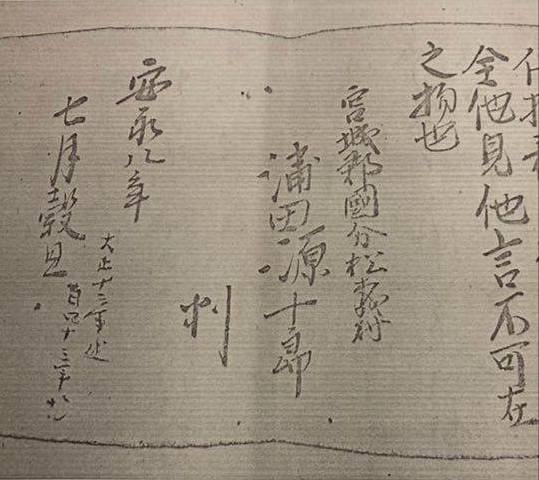 全他見他言不可在
之物也
宮城郡國分松森村
蒲田源十郎
判
安永八年
七月穀旦
大正十二年迄
百四十三年